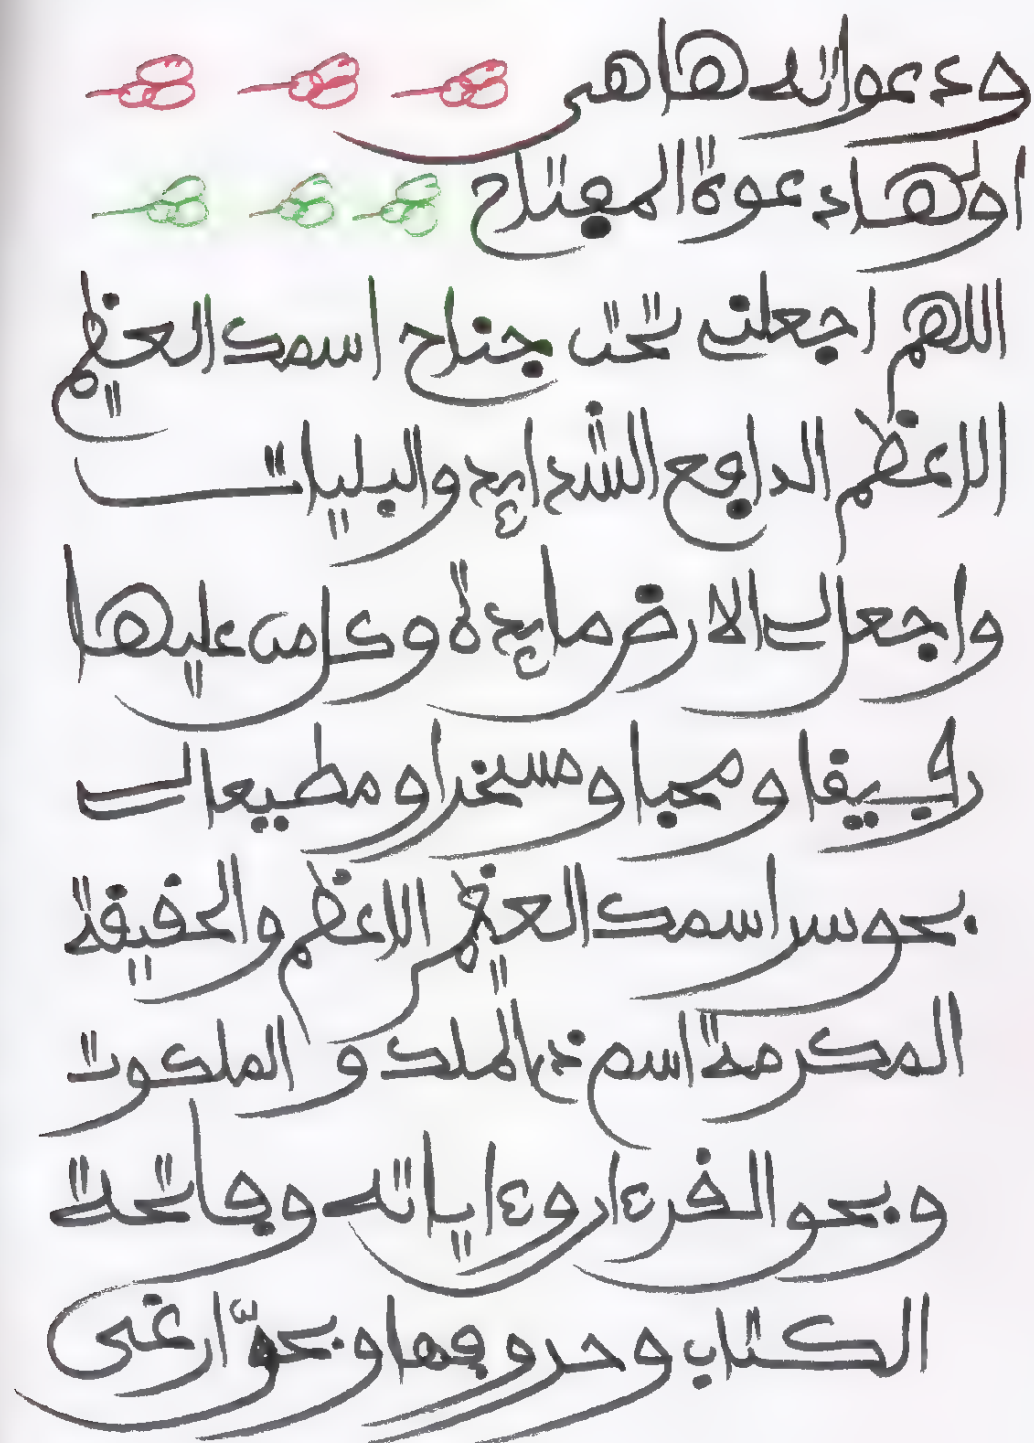 ودعواته هاهى
اولها دعوة المفتاح
اللهم اجعلنى تحت جناح اسمك العظيم
الاعظم الدافع الشدايد والبليات
واجعل لى الارض مايدة وكل من عليها
رفيقا ومحبا ومسخرا ومطيعا لى
بحق سر اسمك العظيم الاعظم والحقيقة
المكرمة اسم ذى الملك و الملكوت
وبحق القرءان وءاياته وفاتحة
الكتاب وحروفها وبحق